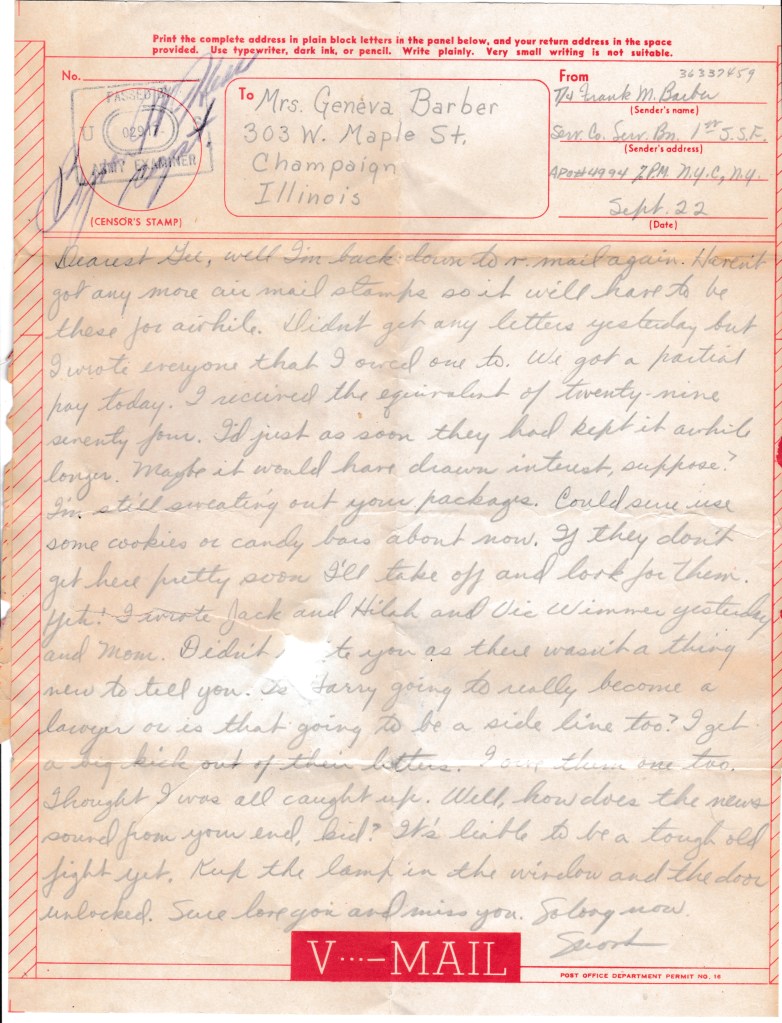 Print the complete address in plain block letters in the panel below, and your return address in the space
provided. Use typewriter, dark ink, or pencil. Write plainly. Very small writing is not suitable.
No.
PASSED BY
U S
02917
ARMY EXAMINER
(CENSOR'S STAMP)
To
Mrs. Geneva Barber
303 W. Maple St,
Champaign
Illinois
From
36337459
T/4 Frank M. Barber
(Sender's name)
Serv. Co. Serv. Bn. 1st S.S.F.
(Sender's address)
APO# 4994 % P.M. N.Y.C, N.Y.
Sept. 22
(Date)
Dearest Gee, well I'm back down to v. mail again. Haven't
got any more air mail stamps so it will have to be
these for awhile. Didn't get any letters yesterday but
I wrote everyone that I owed one to. We got a partial
pay today. I received the equivalent of twenty-nine
seventy four. I'd just as soon they had kept it awhile
longer. Maybe it would have drawn interest, suppose?
I'm still sweating out your packages. Could sure use
some cookies or candy bars about now. If they don't
get here pretty soon I'll take off and look for them.
Yeh! I wrote Jack and Hilah and Vic Wimmer yesterday
and Mom. Didn't te you as there wasn't a thing
new to tell you. Is Harry going to really become a
lawyer or is that going to be a side line too? I get
a big kick out of their letters. I owe them one too.
Thought I was all caught up. Well, how does the news
sound from your end, kid? It's liable to be a tough old
fight yet. Keep the lamp in the window and the door
unlocked. Sure love you and miss you. So long now.
V···—MAIL
POST OFFICE DEPARTMENT PERMIT NO. 16